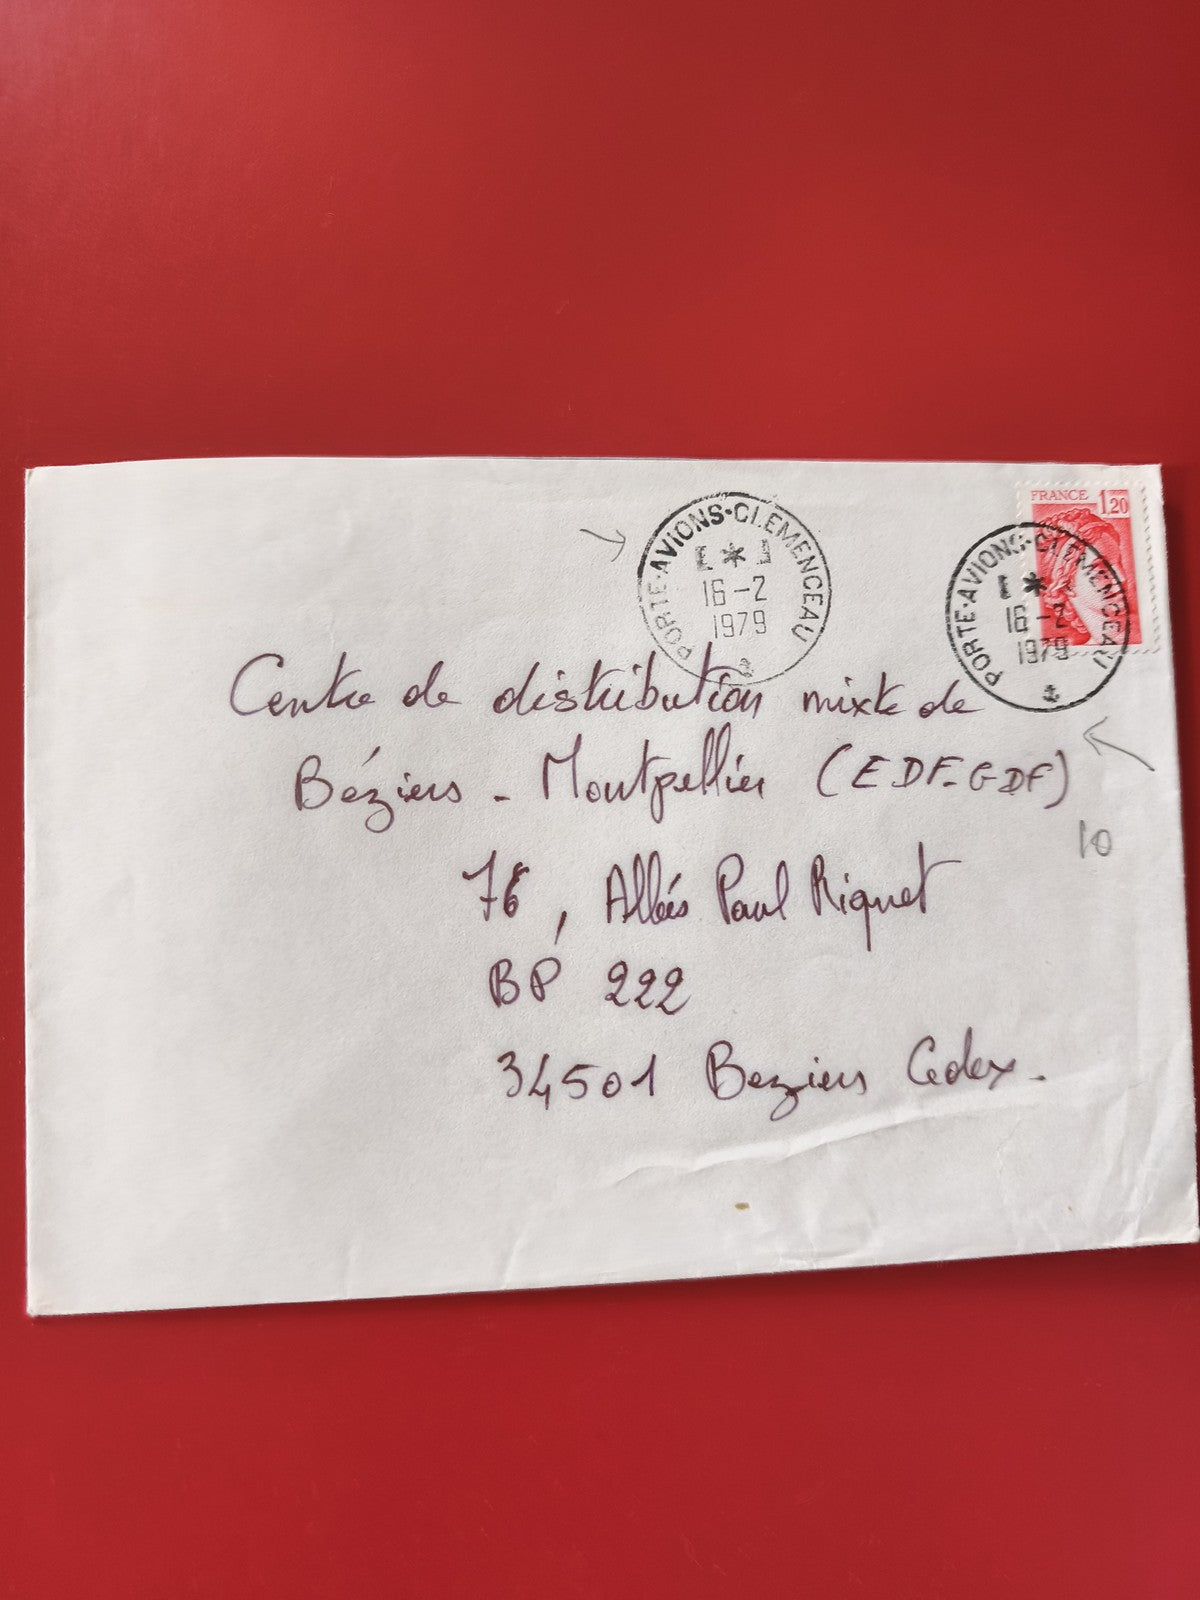 FRANCE 1,20
PORTE-AVIONS-CLEMENCEAU
*
16-2
1979
PORTE-AVIONS-CLEMENCEAU
*
16-2
1979
Centre de distribution mixte de
Béziers - Montpellier (EDF-GDF)
10
76, Allées Paul Riquet
BP 222
34501 Beziers Cedex.